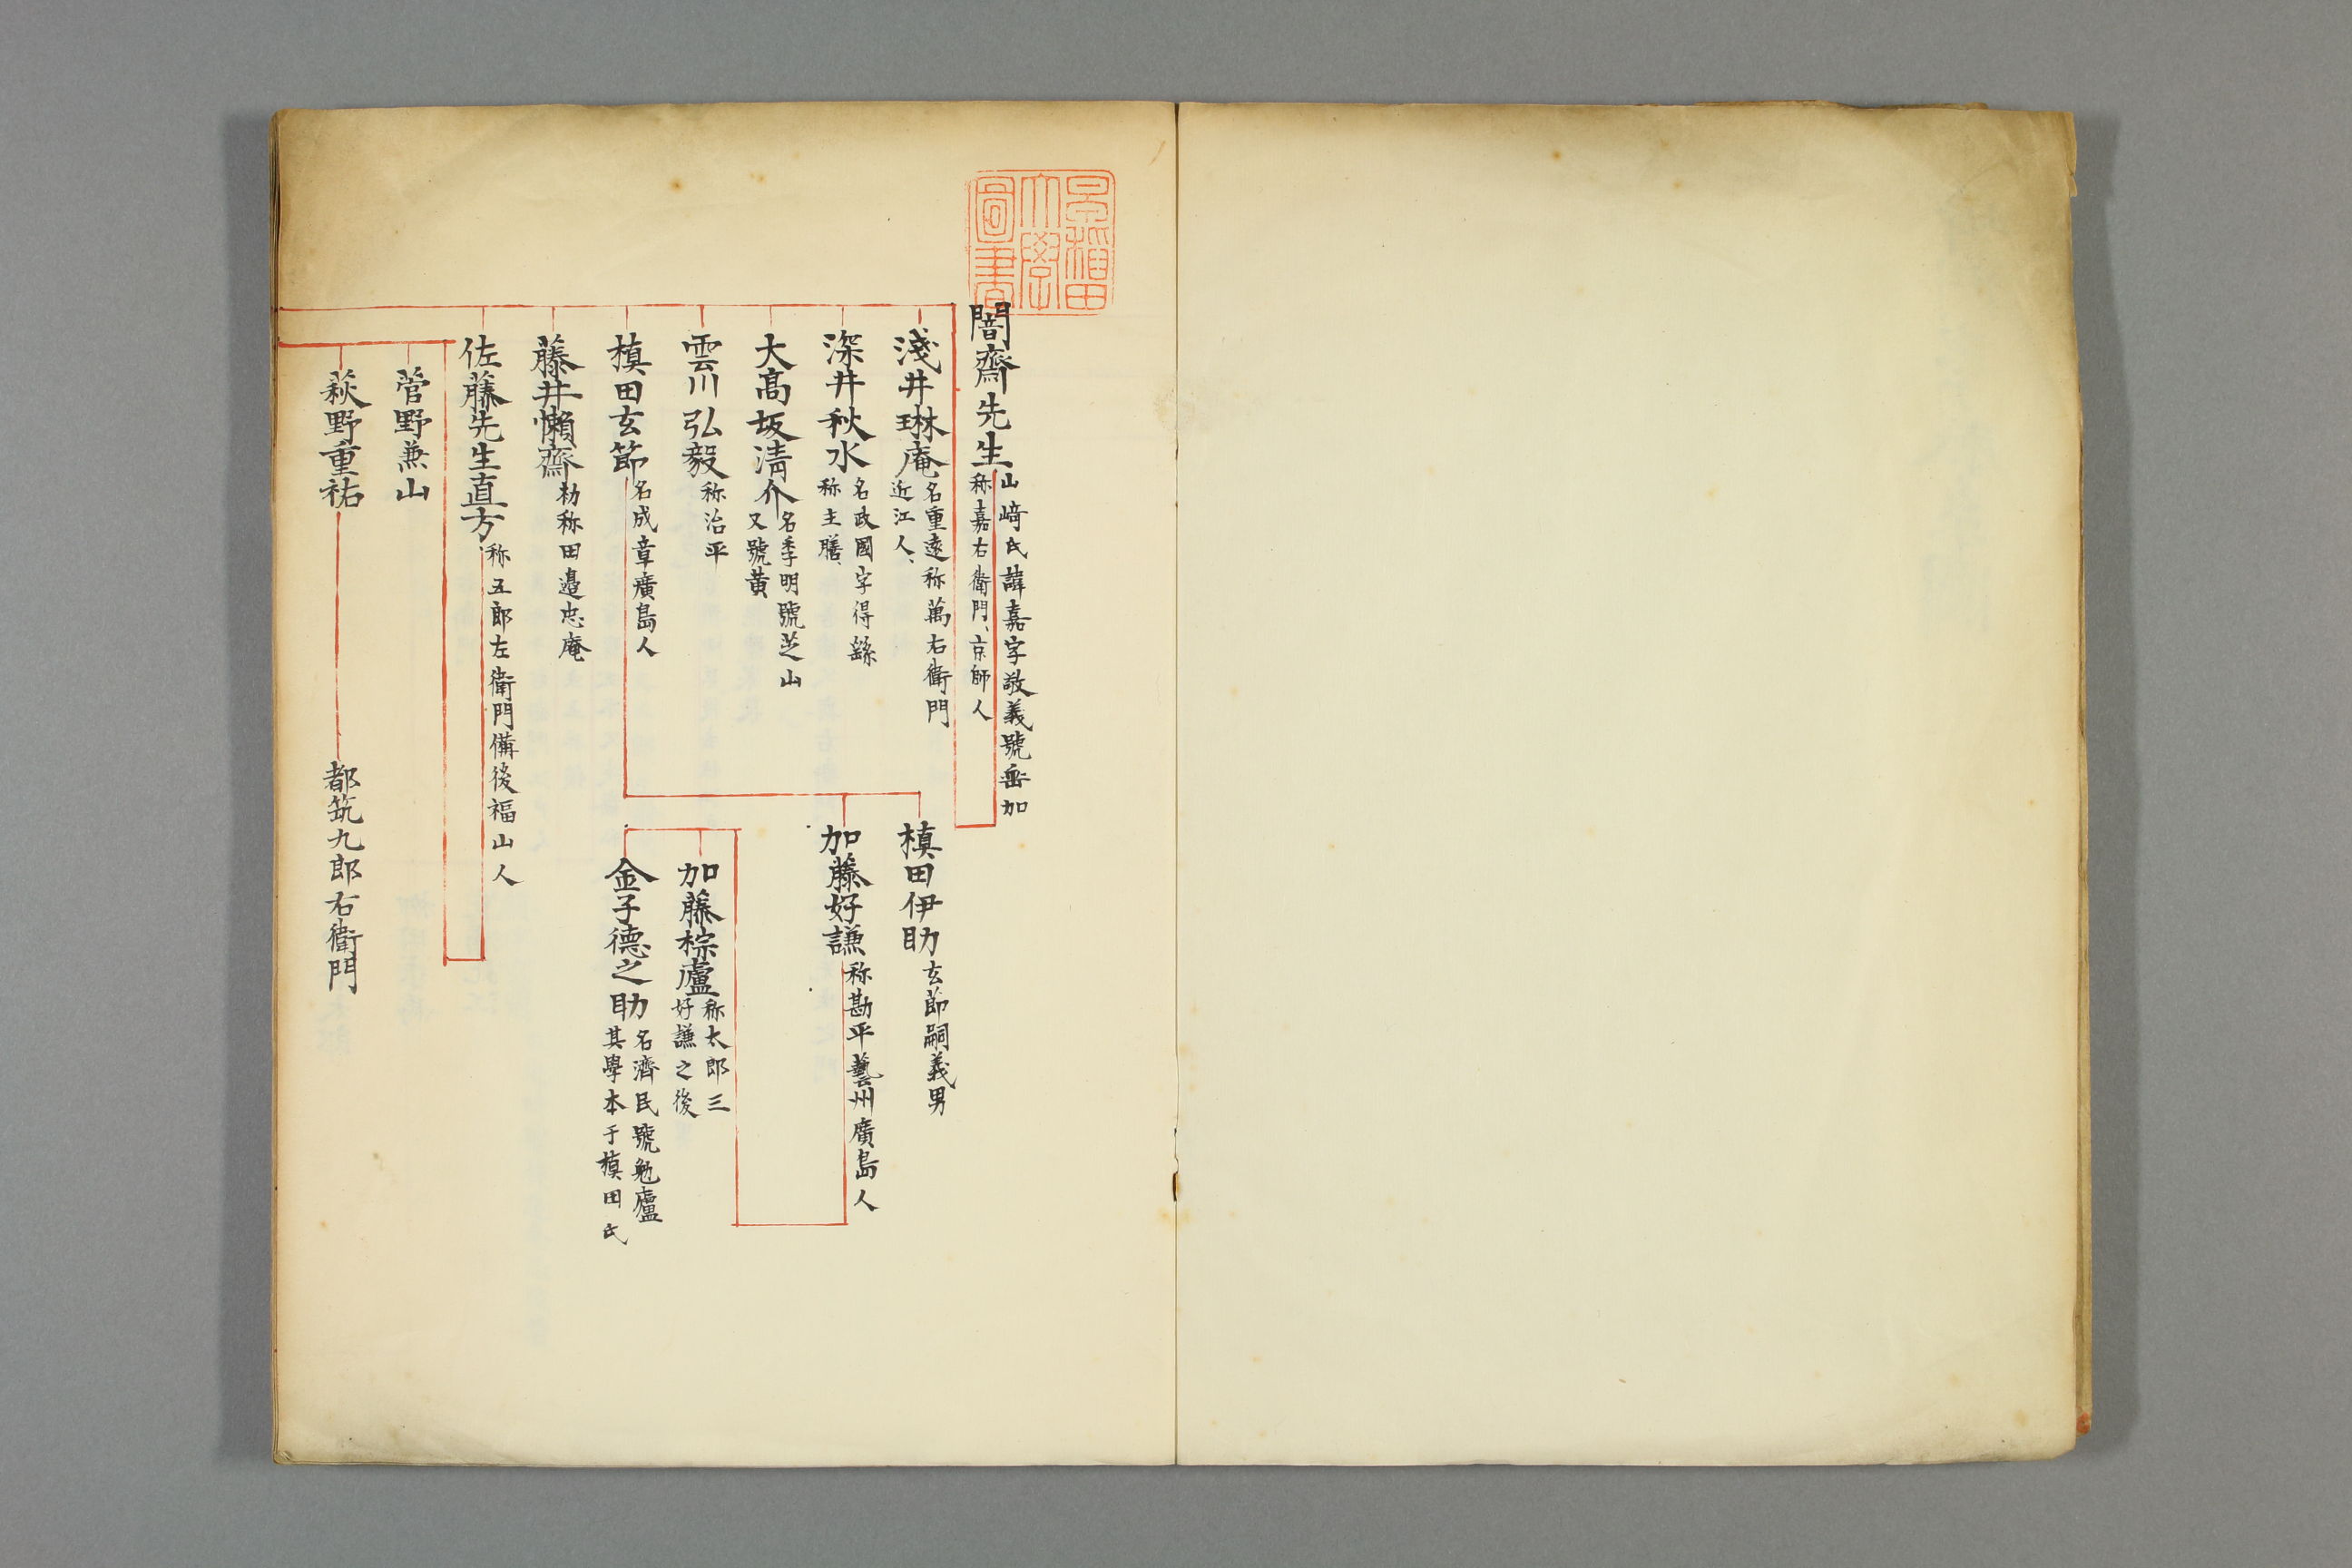 早稲田
大學
圖書
闇齋先生
山﨑氏諱嘉字敬義號垂加
称嘉右衛門、京師人
淺井琳庵
名重遠称萬右衛門
近江人、
深井秋水
名政國字得繇
称主膳
大髙坂清介
名季明號芝山
又號黄
雲川弘毅
称治平
槙田玄節
名成章廣島人
藤井懶齋
初称田邉忠庵
佐藤先生直方
称五郎左衛門備後福山人
菅野兼山
萩野重祐
都筑九郎右衛門
槙田伊助
玄節嗣義男
加藤好謙
称勘平藝州廣島人
加藤棕廬
称太郎三
好謙之後
金子德之助
名濟民號勉廬
其學本于槙田氏